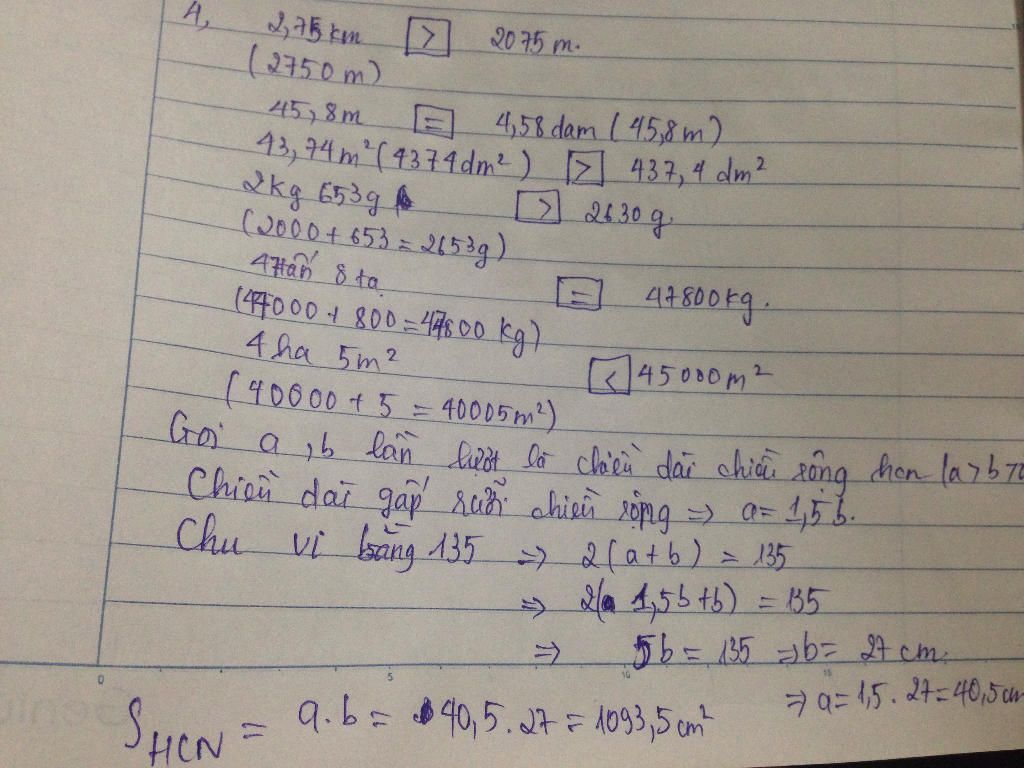 4, 2,75 km > 2075 m.
(2750 m)
45,8m = 4,58 dam (45,8m)
43,74m² (4374dm²) > 437,4 dm²
2kg 653g > 2630 g.
(2000 + 653 = 2653g)
47tấn 8 tạ = 47800kg.
(47000 + 800 = 47800 kg)
4 ha 5m² < 45000m²
(40000 + 5 = 40005m²)
Gọi a, b lần lượt là chiều dài chiều rộng hcn (a > b > 0
Chiều dài gấp rưỡi chiều rộng => a = 1,5 b.
Chu vi bằng 135 => 2(a+b) = 135
=> 2( 1,5b+b) = 135
=> 5b = 135 => b = 27 cm.
=> a = 1,5 . 27 = 40,5 cm
S HCN = a.b = 40,5 . 27 = 1093,5 cm²
0 5 10 15